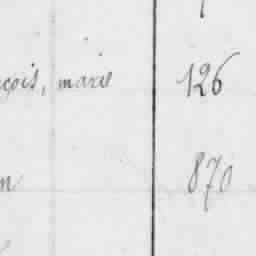 çois, marie 126
n 870